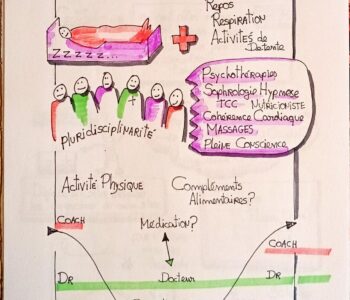 Repos
Respiration
Activités de
Détente
ZZZZZ...
Psychothérapies
Sophrologie Hypnose
TCC Nutricioniste
Cohérence Cardiaque
Massages
Pleine Conscience
Pluridisciplinarité
Activité Physique
Compléments
Alimentaires?
Coach
Médication?
Coach
Dr
Docteur
Dr